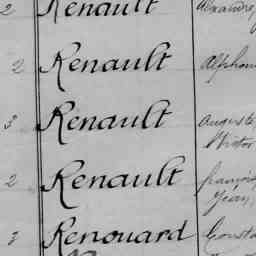 2 Renault
2 Renault Alphon
3 Renault Auguste
Victor
2 Renault françois
Jean
2 Renouard Consta